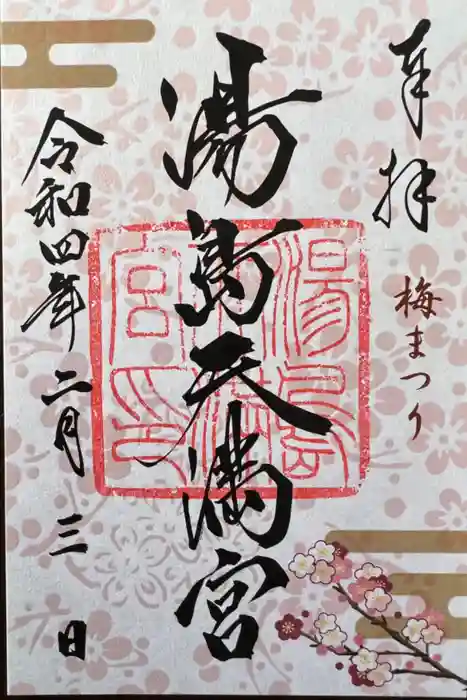 奉拝
梅まつり
湯島天満宮
湯島天満宮印
令和四年二月三日